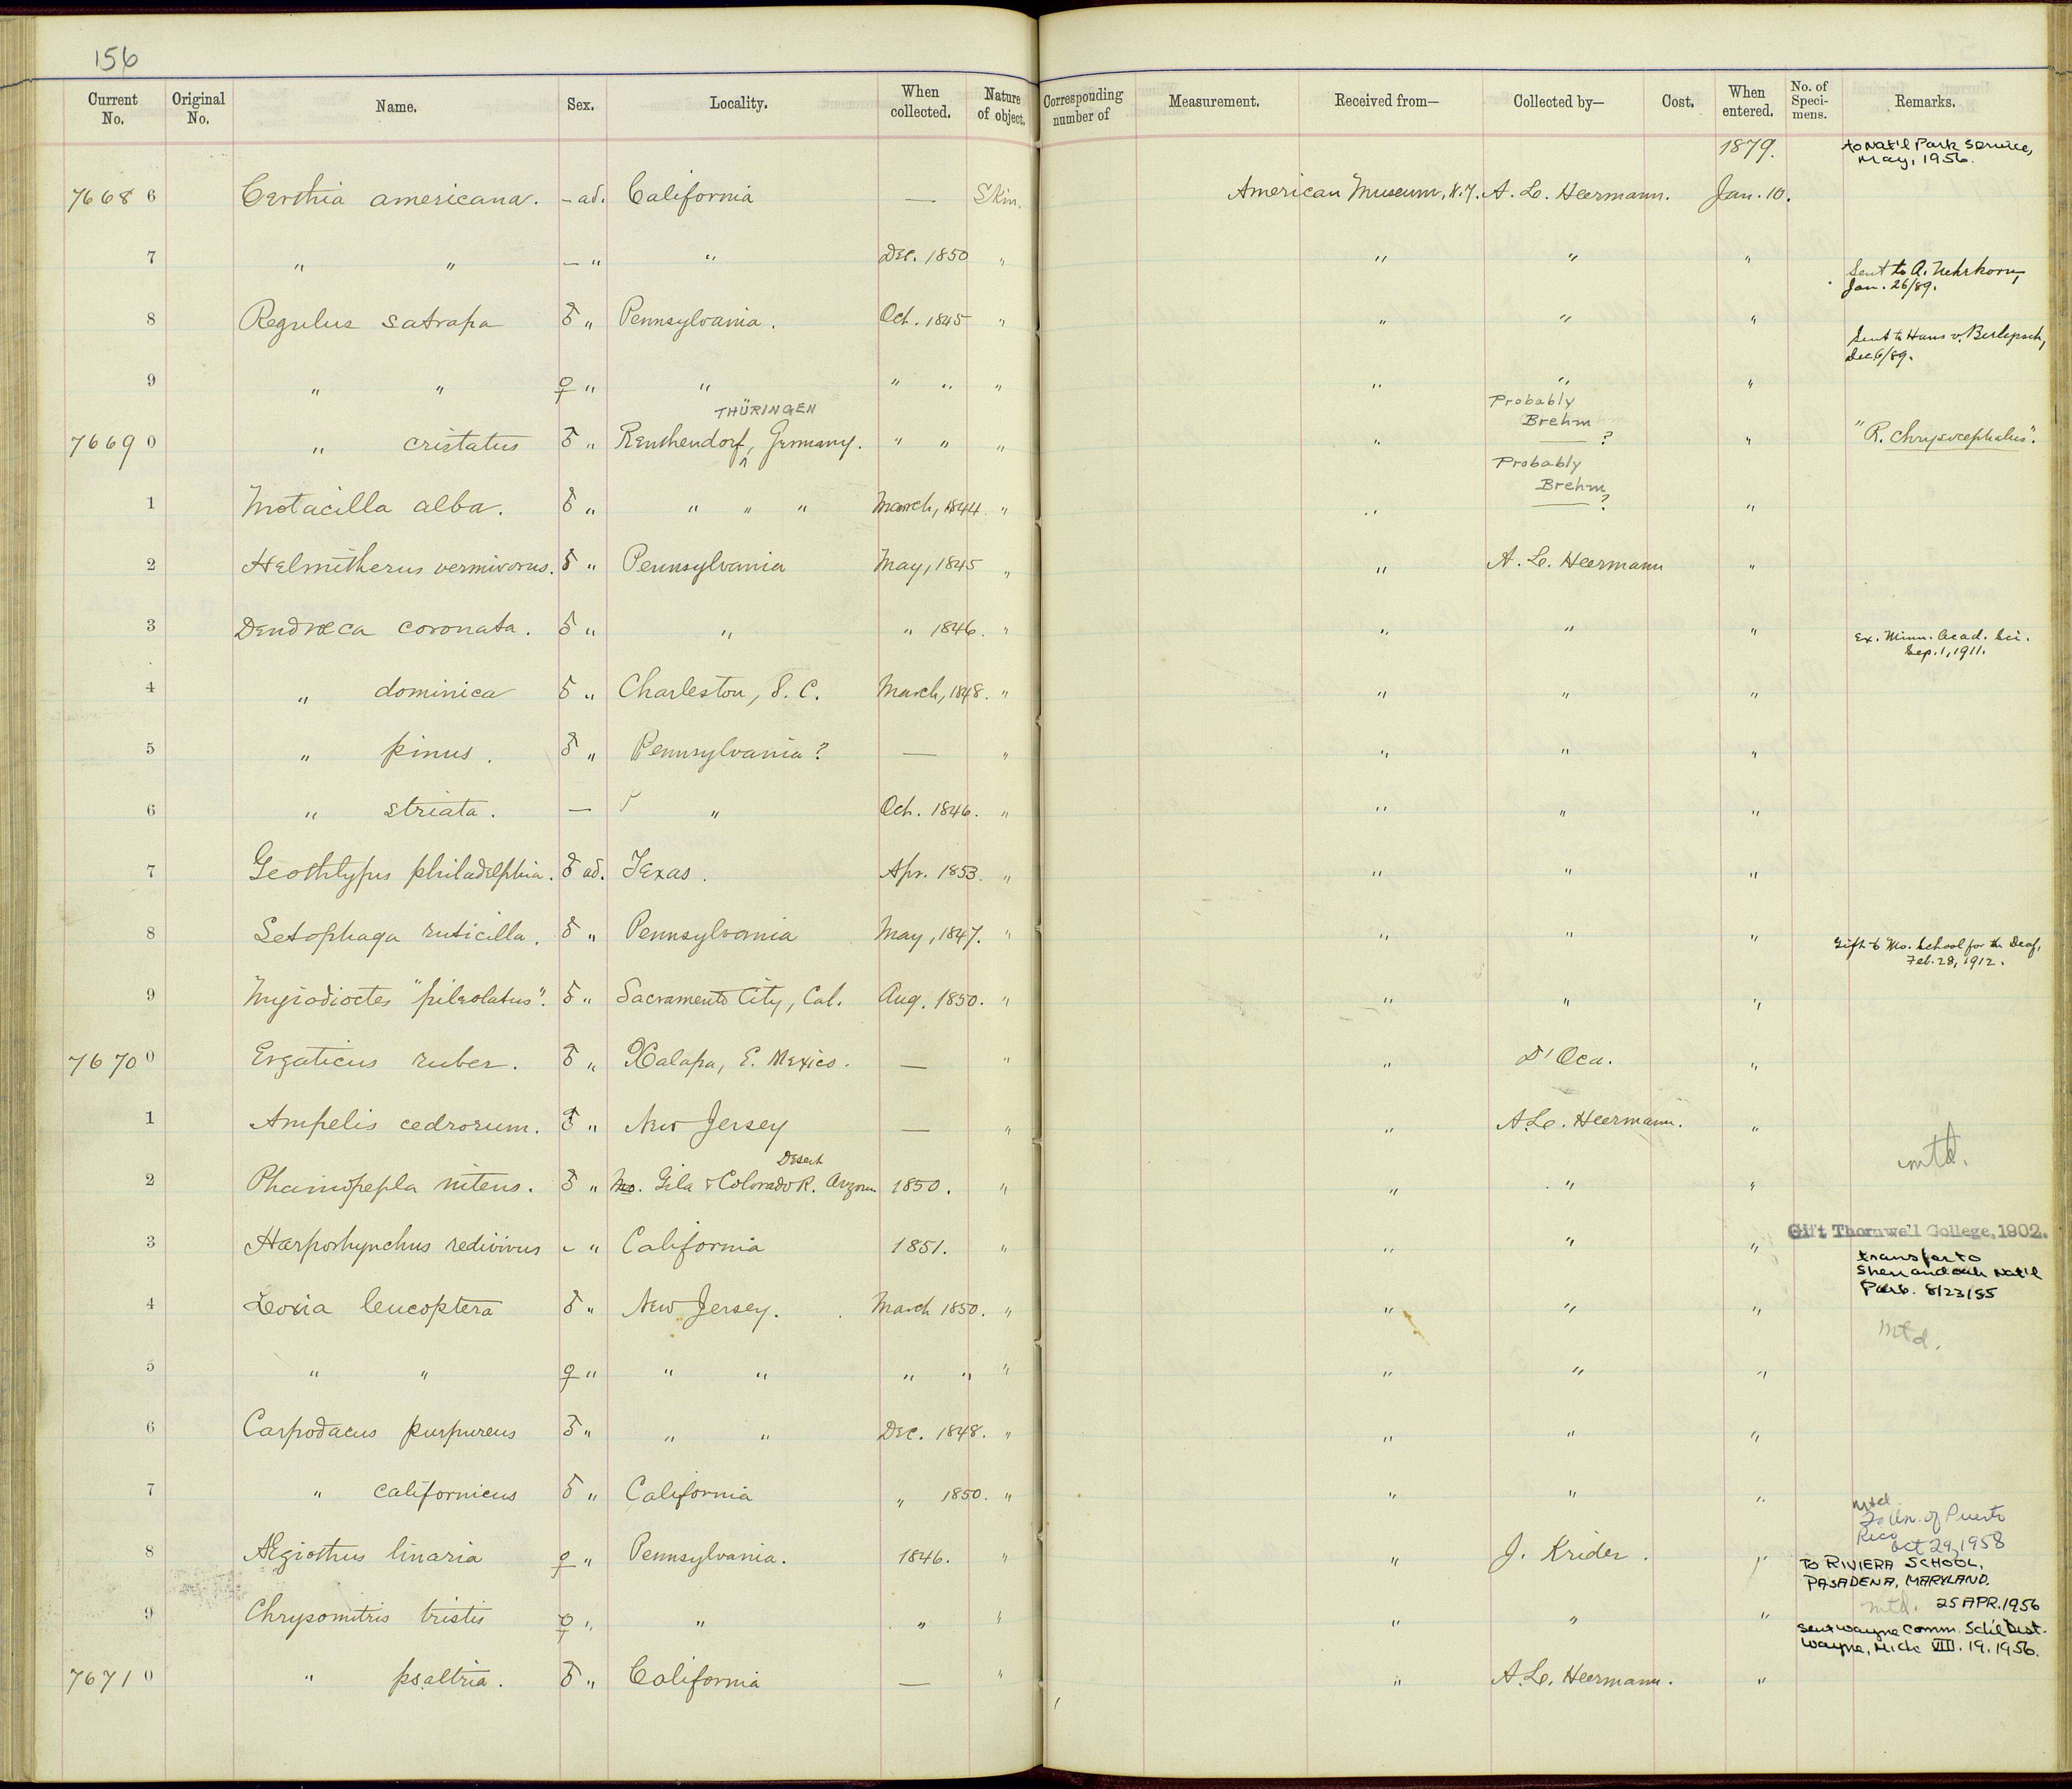 156
Current No. Original No. Name. Sex. Locality. When collected. Nature of object. Corresponding number of Measurement. Received from— Collected by— Cost. When entered. No. of Speci- mens. Remarks.
1879. to Nat'l Park Service,
May, 1956.
7668 6 Certhia americana. – ad. California — Skin. American Museum, N.Y. A. L. Heermann. Jan. 10.
7 " " – " " Dec. 1850 " " " "
Sent to A. Nehrkorn,
Jan. 26/89.
8 Regulus satrapa ♂ " Pennsylvania. Oct. 1845 " " " "
Sent to Hans v. Berlepsch,
Dec 6/89.
9 " " ♀ " " " " " " " "
THÜRINGEN Probably
Brehm
7669 0 " cristatus ♂ " Renthendorf, ^ Germany. " " " " — ? " "R. chrysocephalus".
Probably
Brehm
1 Motacilla alba. ♂ " " " " March, 1844. " " — ? "
2 Helmitherus vermivorus. ♂ " Pennsylvania May, 1845 " " A. L. Heermann "
3 Dendrœca coronata. ♂ " " " 1846. " " " "
Ex. Minn. Acad. Sci.
Sep. 1, 1911.
4 " dominica ♂ " Charleston, S. C. March, 1848. " " " "
5 " pinus. ♂ " Pennsylvania? — " " " "
6 " striata. — " Oct. 1846. " " " "
7 Geothlypis philadelphia. ♂ ad. Texas. Apr. 1853. " " " "
8 Setophaga ruticilla. ♂ " Pennsylvania May, 1847. " " " "
Gift to Mo. School for the Deaf,
Feb. 28, 1912.
9 Myiodioctes "pileolatus". ♂ " Sacramento City, Cal. Aug. 1850. " " " "
7670 0 Ergaticus ruber. ♂ " Xalapa, E. Mexico. — " " D'Oca. "
1 Ampelis cedrorum. ♂ " New Jersey — " " A. L. Heermann. "
mtd.
Desert
2 Phainopepla nitens. ♂ " Gila & Colorado R. Arizona 1850. " " " "
Gift Thornwell College, 1902.
3 Harporhynchus redivivus – " California 1851. " " " "
transfer to
Shenandoah Nat'l
Park. 8/23/55
4 Loxia leucoptera ♂ " New Jersey. March 1850. " " " "
mtd.
5 " " ♀ " " " " " " " " "
6 Carpodacus purpureus ♂ " " " Dec. 1848. " " " "
7 " californicus ♂ " California " 1850. " " " "
mtd.
To Un. of Puerto
Rico
Oct 29, 1958
8 Ægiothus linaria ♀ " Pennsylvania. 1846. " " J. Krider. "
TO RIVIERA SCHOOL,
PASADENA, MARYLAND.
mtd. 25 APR. 1956
9 Chrysomitris tristis ♀ " " " " " " "
Sent Wayne Comm. Sch'l Dist.
Wayne, Mich VIII. 19. 1956.
7671 0 " psaltria. ♂ " California — " " A. L. Heermann. "